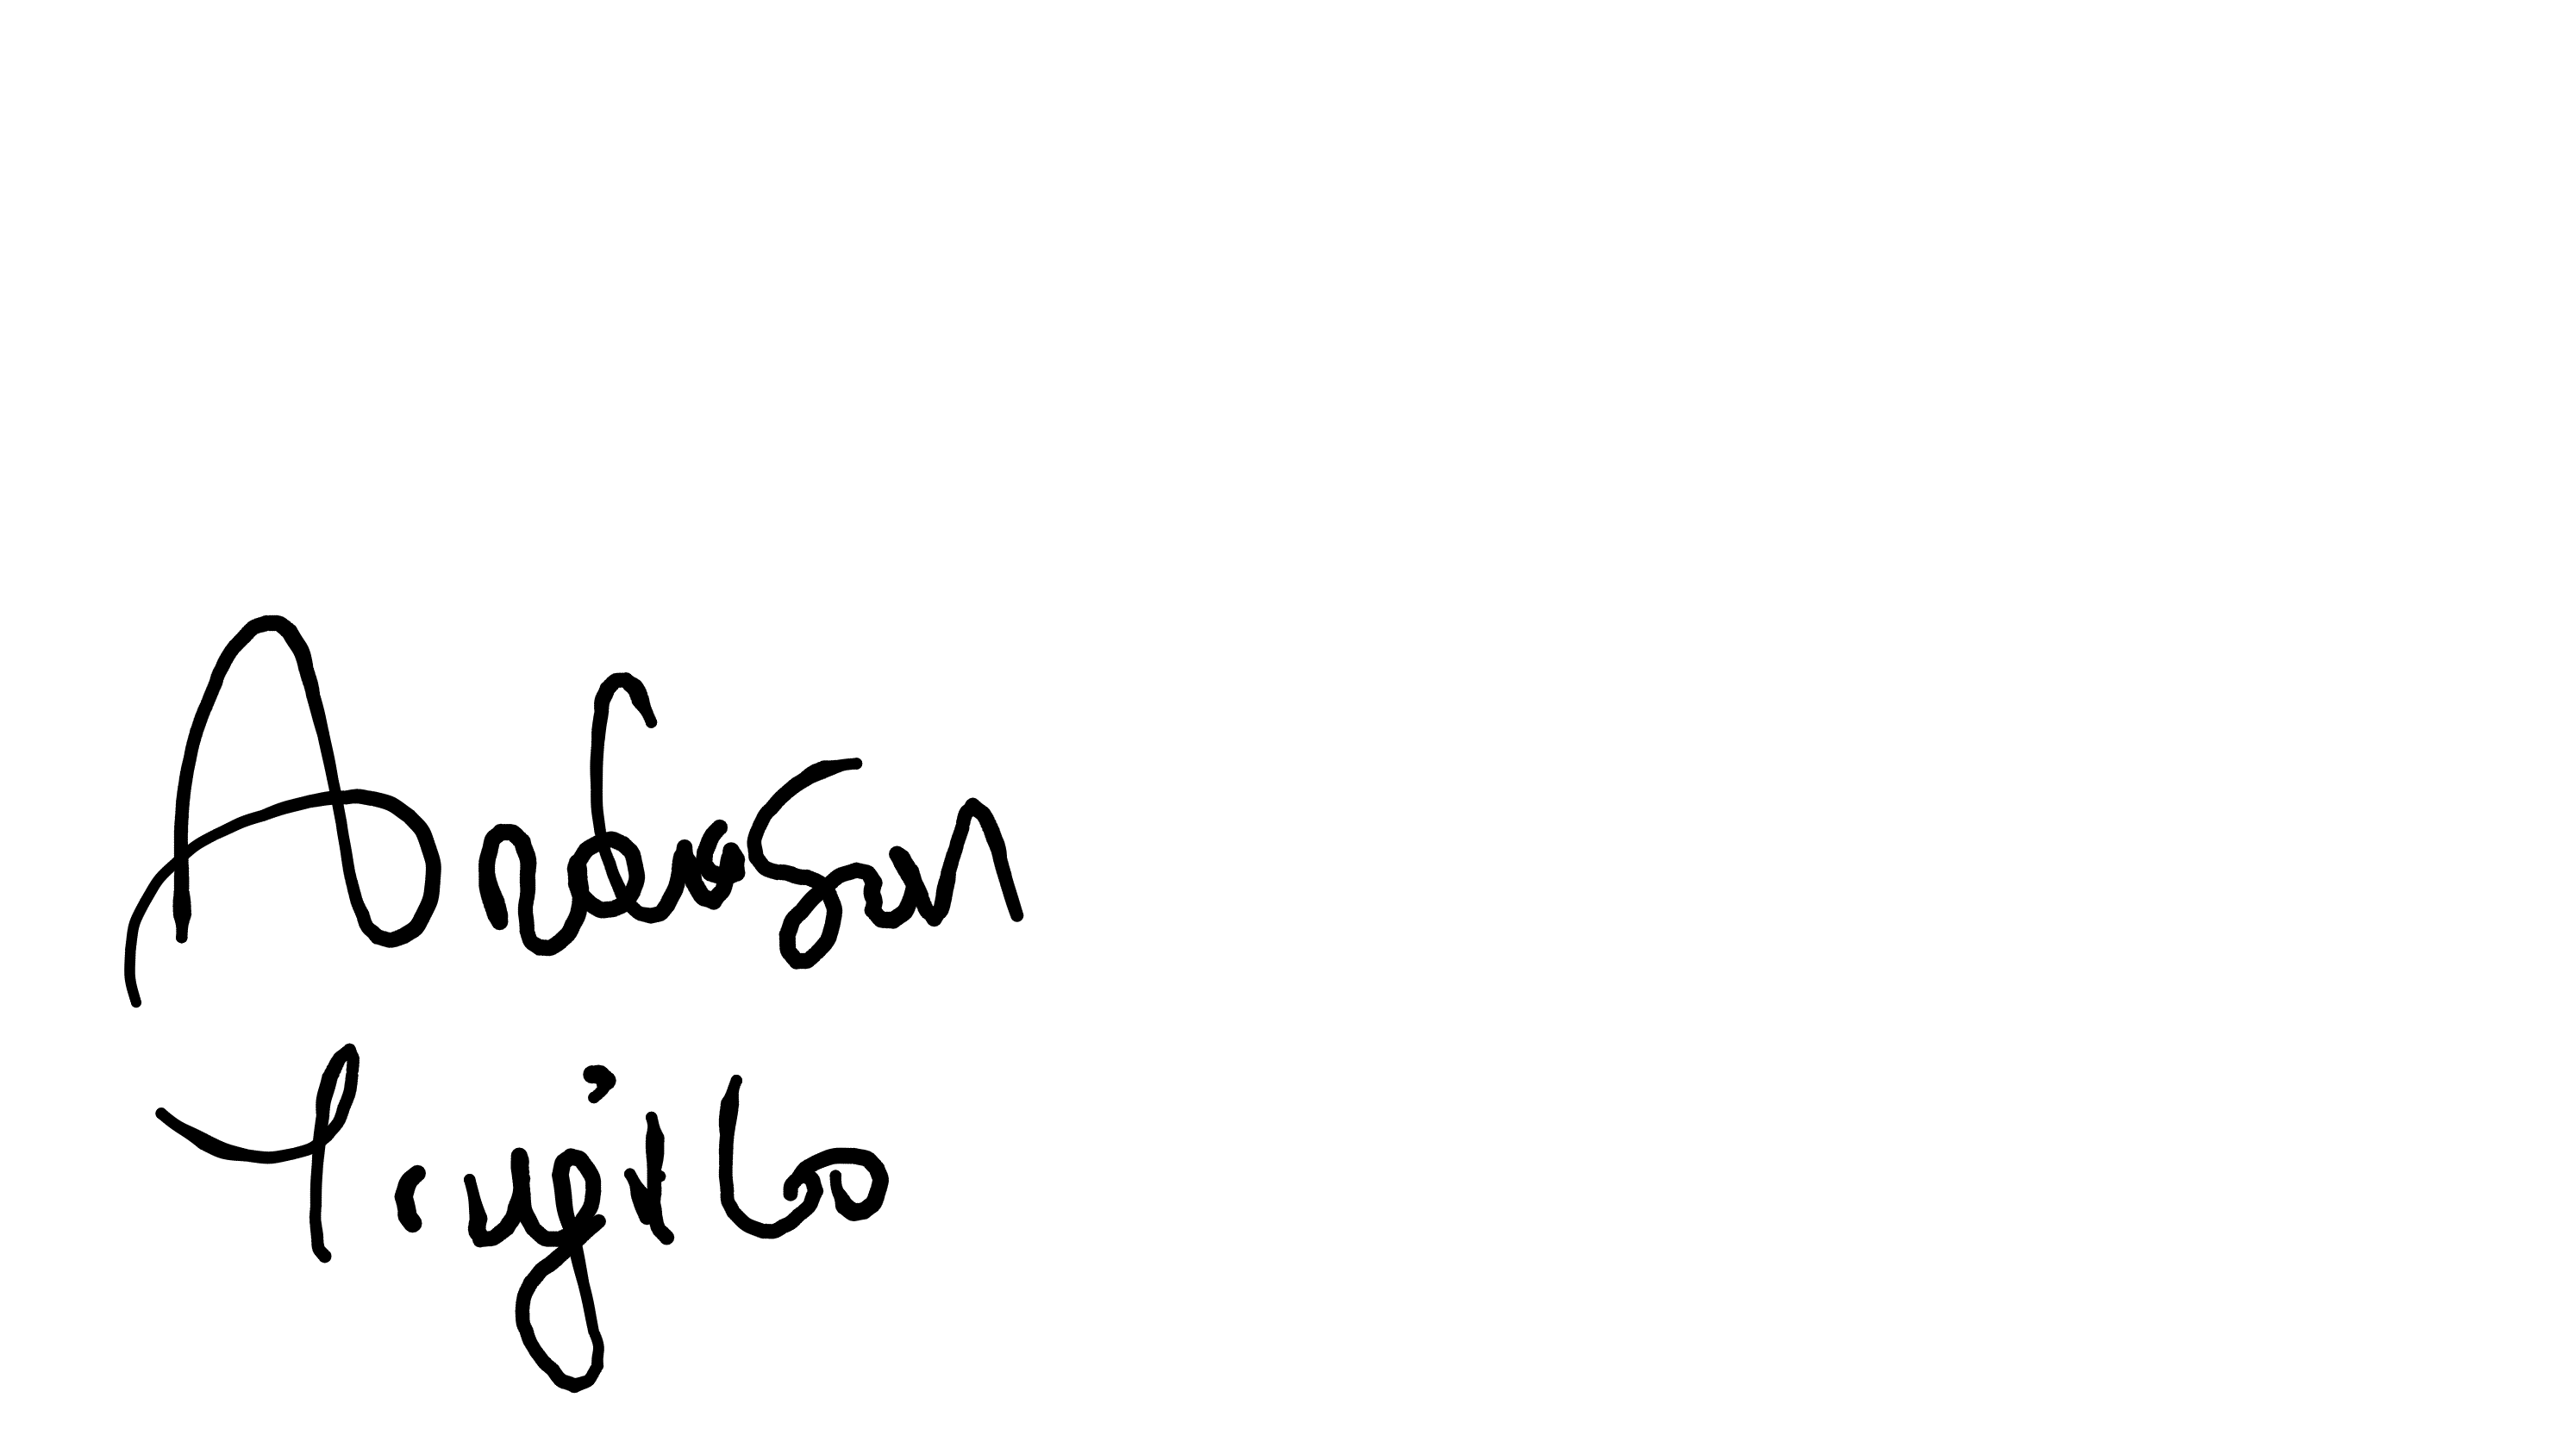 Anderson
Trujillo